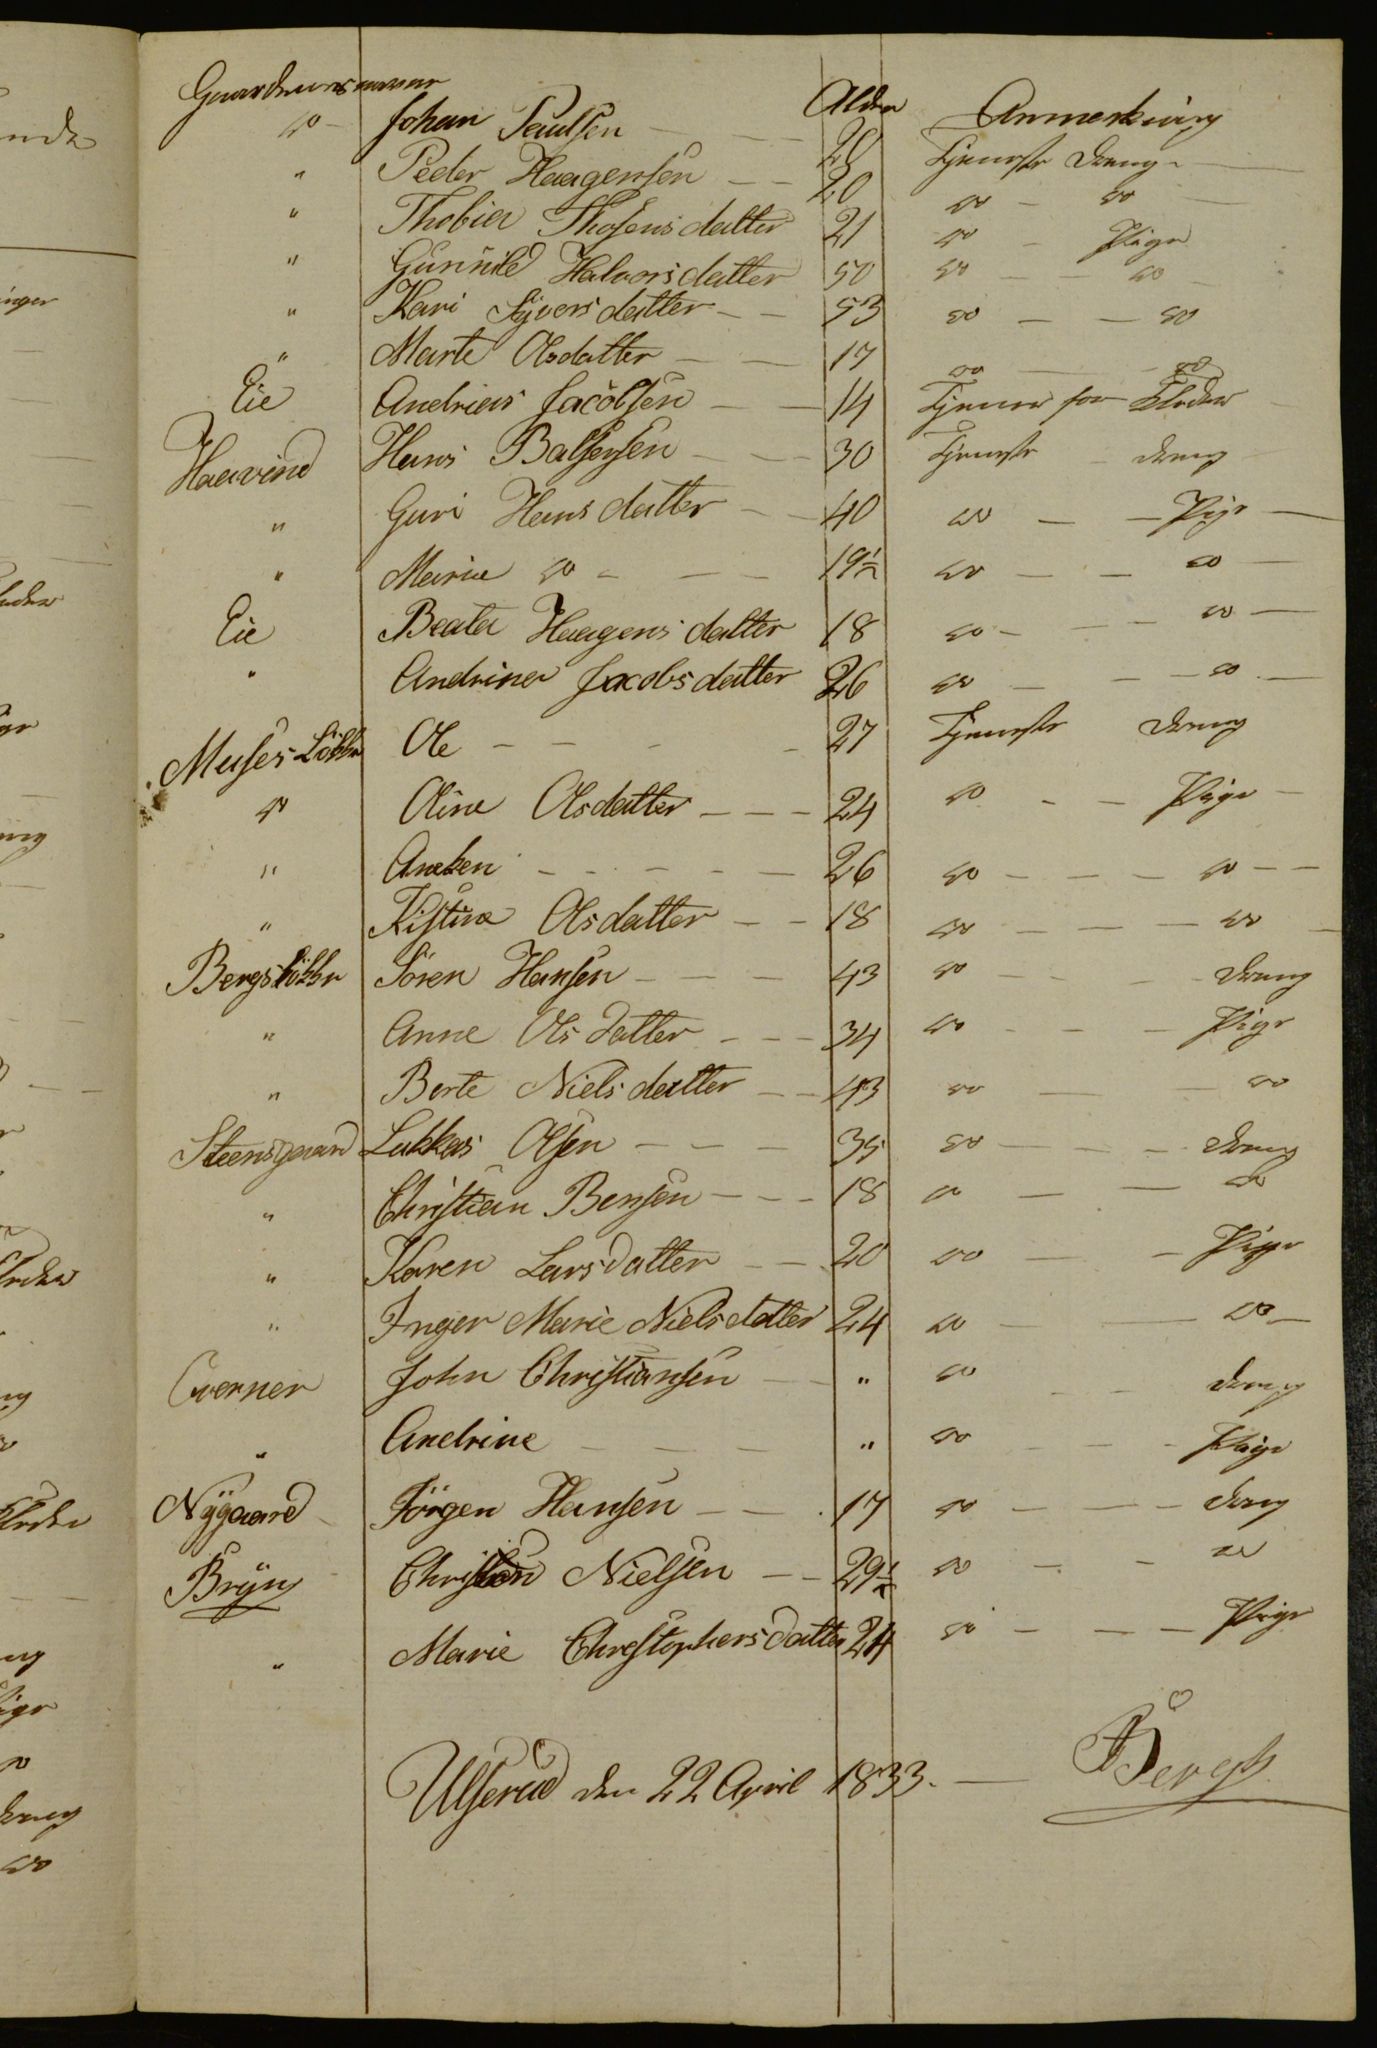 Gaardenes navne Alder Anmerkning
do Johan Paulsen 28 Tjeneste Dreng
" Peder Haagensen 20 do do
" Thobia Thosens datter 21 do Pige
" Gunnild Halvorsdatter 50 do do
" Kari Syvers datter 53 do do
" Marte Olsdatter 17 do do
Eie Andreas Jacobsen 14 Tjener for Klæder
Haavind Hans Balsersen 30 Tjeneste dreng
" Guri Hansdatter 40 do Pige
" Maria do 19½ do do
Eie Beata Haagens datter 18 do do
" Andrine Jacobs datter 26 do do
Muses Løkke Ole 27 Tjeneste dreng
do Oline Olsdatter 24 do Pige
" Aneken 26 do do
" Kistine Olsdatter 18 do do
Bergsløkke Sören Hansen 43 do dreng
" Anne Olsdatter 34 do Pige
" Berte Nielsdatter 43 do do
Steensgaard Lukkas Olsen 35 do dreng
" Christian Bensen 18 do do
" Karen Larsdatter 20 do Pige
" Inger Marie Nielsdatter 24 do do
Cverner John Christiansen " do dreng
" Andrine " do Pige
Nÿgaard Jörgen Hansen 17 do dreng
Brÿn Christen Nielsen 29½ do do
" Marie Chrestophersdatter 24 do Pige
Ulserud den 22 April 1833. Bergh